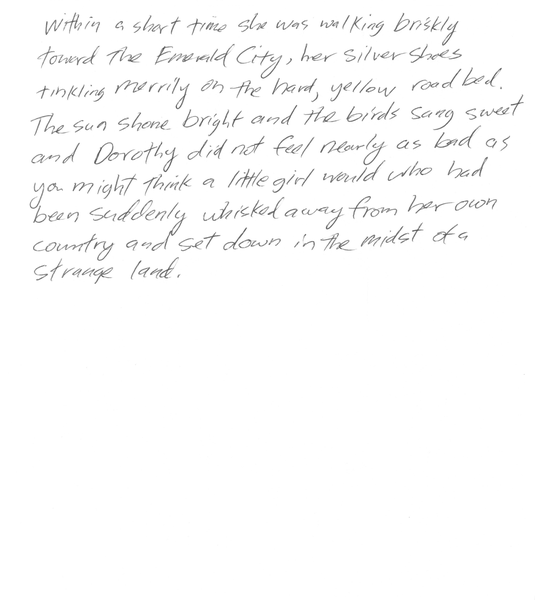 Within a short time she was walking briskly
toward the Emerald City, her Silver Shoes
tinkling merrily on the hard, yellow roadbed.
The sun shone bright and the birds sang sweet
and Dorothy did not feel nearly as bad as
you might think a little girl would who had
been suddenly whisked away from her own
country and set down in the midst of a
strange land.